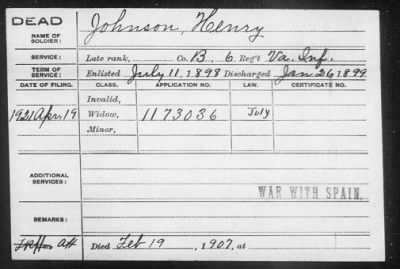 DEAD
NAME OF SOLDIER: Johnson, Henry
SERVICE: Late rank, Co. B, 6 Reg't Va. Inf.
TERM OF SERVICE: Enlisted July 11, 1898 Discharged Jan 26 1899
DATE OF FILING. CLASS. APPLICATION NO. LAW. CERTIFICATE NO.
Invalid,
1921 Apr. 19 Widow, 1173036 July
Minor,
ADDITIONAL SERVICES:
WAR WITH SPAIN.
REMARKS:
Died Feb 19, 1907, at